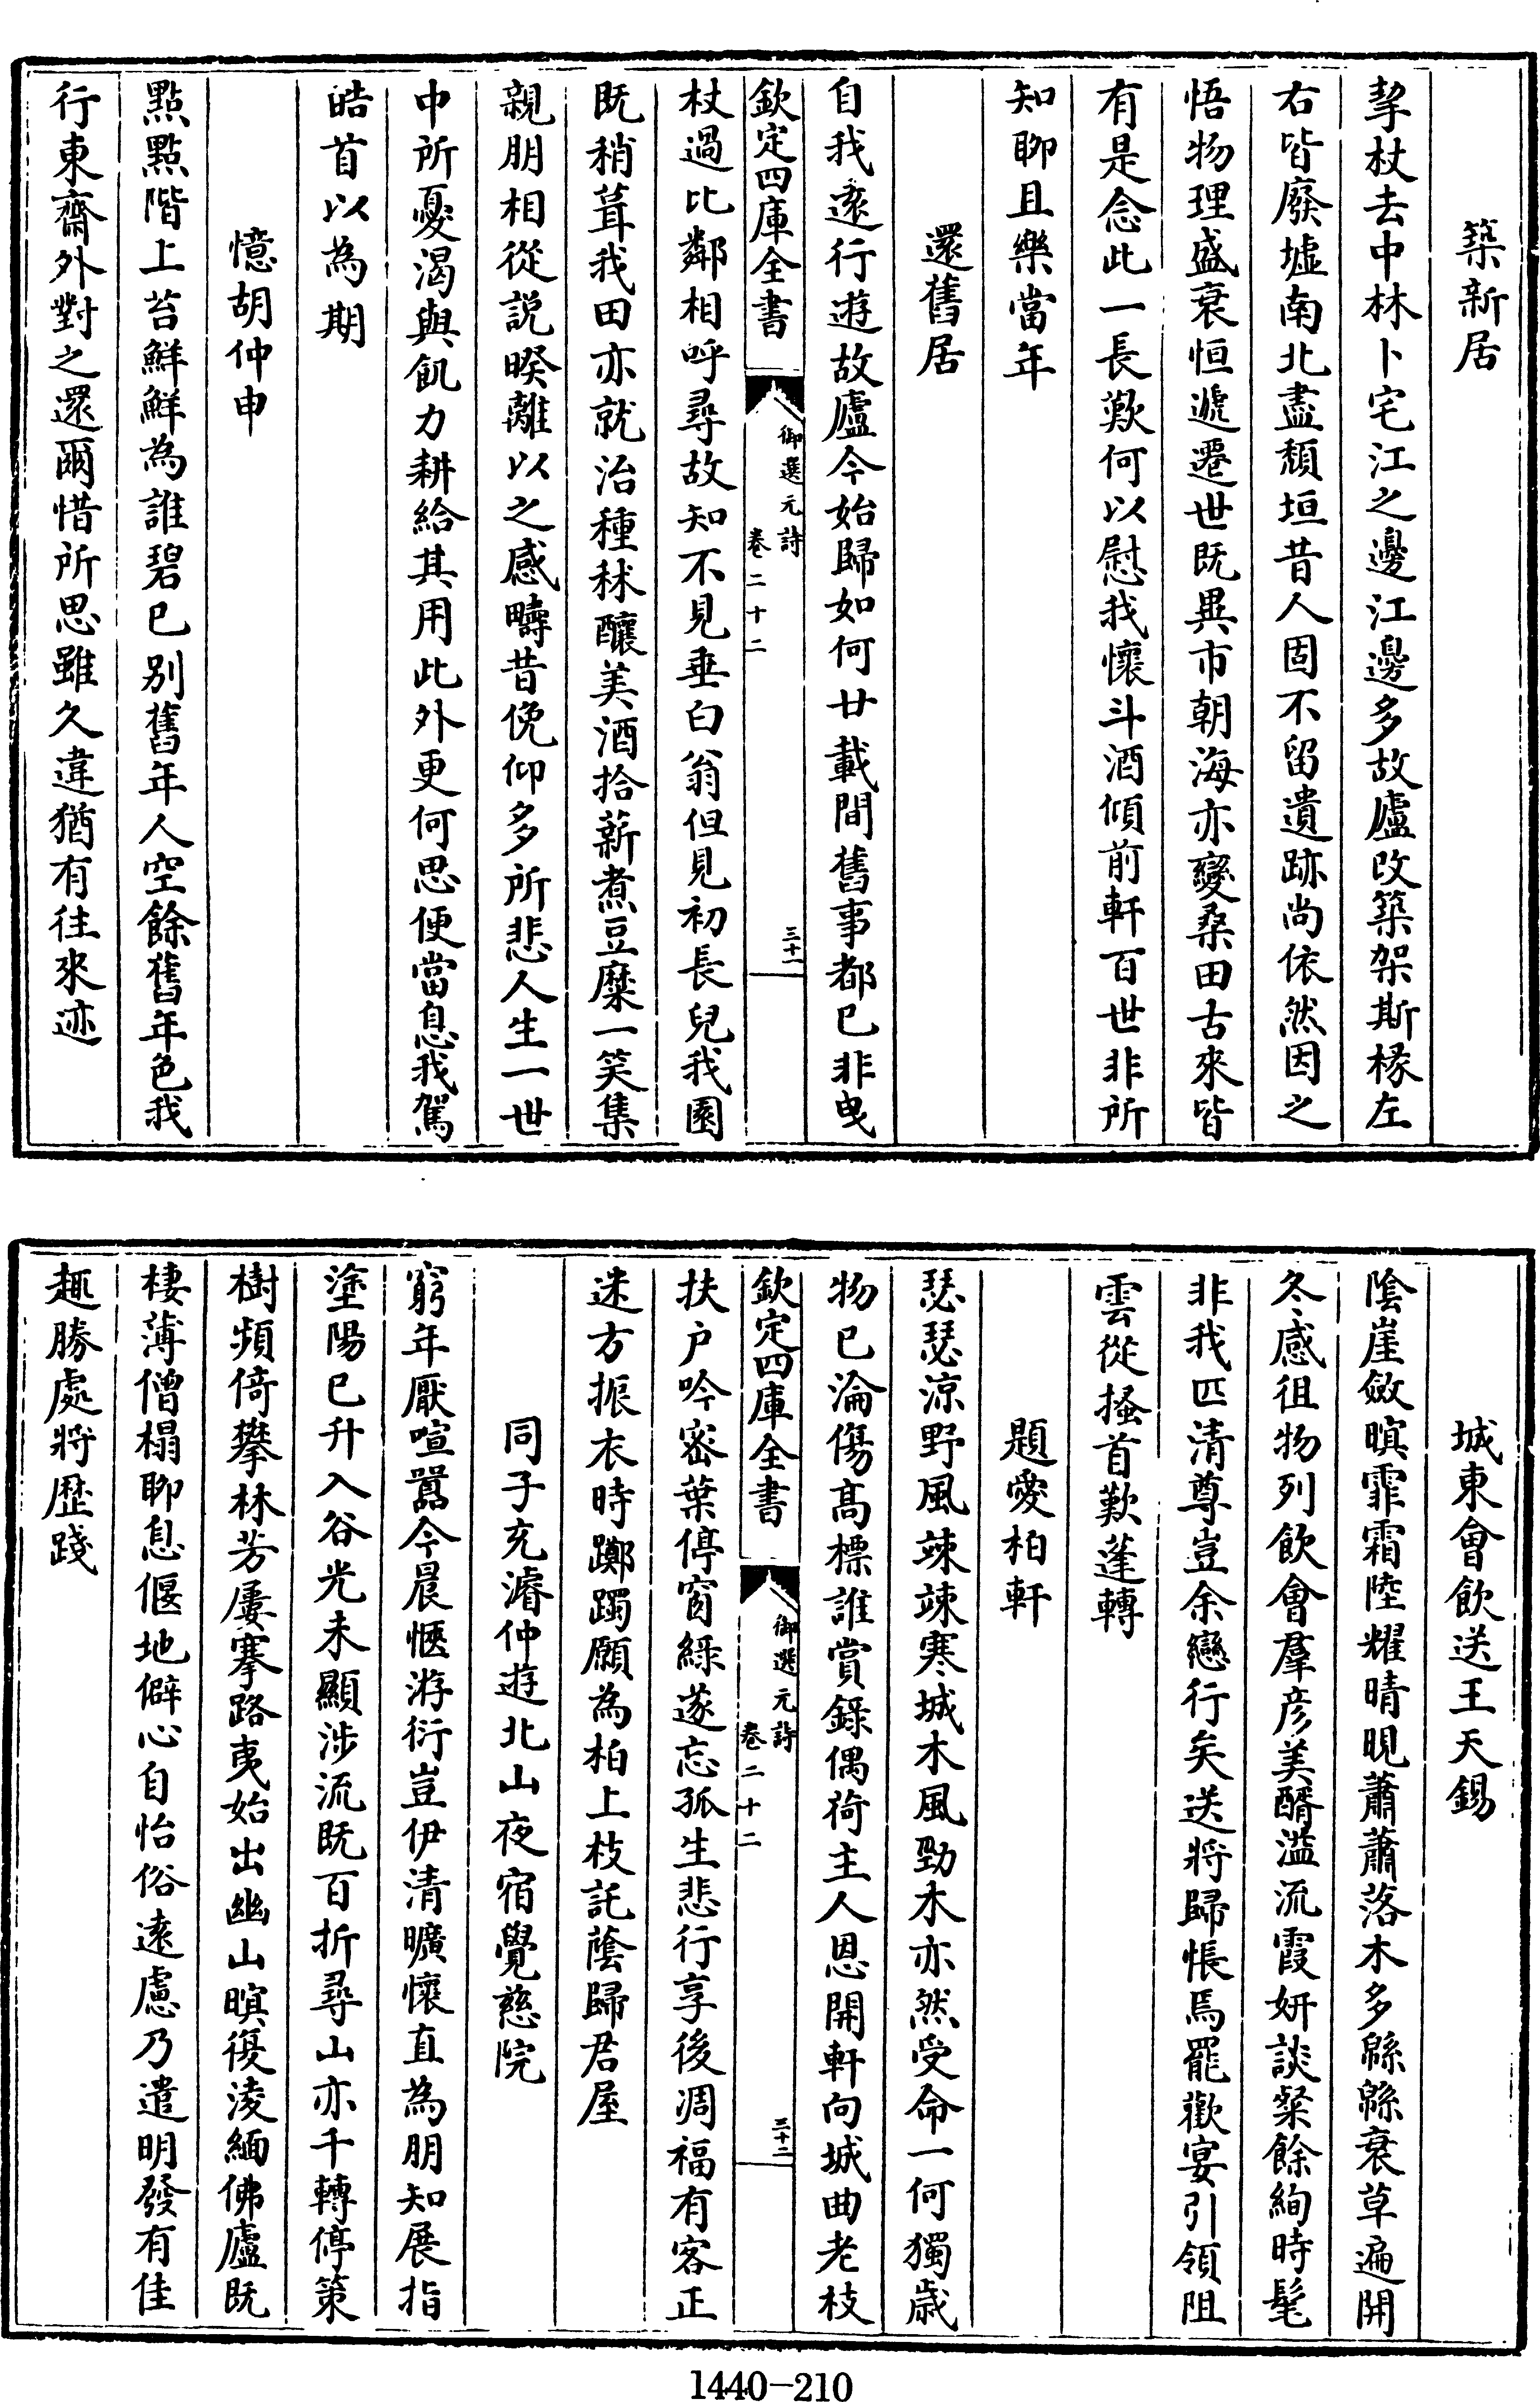 築新居
挈杖去中林卜宅江之邊江邊多故廬改築架斯椽左
右皆廢墟南北盡頹垣昔人固不留遺跡尚依然因之
悟物理盛衰恒遞遷世既異市朝海亦變桑田古來皆
有是念此一長歎何以慰我懷斗酒傾前軒百世非所
知聊且樂當年
還舊居
自我遠行遊故廬今始歸如何廿載間舊事都已非曳
欽定四庫全書
御選元詩
卷二十二
三十一
杖過比鄰相呼尋故知不見垂白翁但見初長兒我園
既稍葺我田亦就治種秫釀美酒拾薪煮豆糜一笑集
親朋相從説暌離以之感疇昔俛仰多所悲人生一世
中所憂渴與飢力耕給其用此外更何思便當息我駕
皓首以為期
憶胡仲申
點點階上苔鮮鮮為誰碧已别舊年人空餘舊年色我
行東齋外對之還爾惜所思雖久違猶有往來迹
城東會飲送王天錫
陰崖斂暝霏霜陸耀晴晛蕭蕭落木多緜緜衰草遍開
冬感徂物列飲會羣彦美醑溢流霞妍談粲餘絢時髦
非我匹清尊豈余戀行矣送將歸悵焉罷歡宴引領阻
雲從搔首歎蓬轉
題愛柏軒
瑟瑟涼野風竦竦寒城木風勁木亦然受命一何獨歲
物已淪傷髙標誰賞錄偶荷主人恩開軒向城曲老枝
欽定四庫全書
御選元詩
卷二十二
三十二
扶户吟密葉停窗綠遂忘孤生悲行享後凋福有客正
迷方振衣時躑躅願為柏上枝託蔭歸君屋
同子充濬仲遊北山夜宿覺慈院
窮年厭喧囂今晨愜游衍豈伊清曠懷直為朋知展指
塗陽已升入谷光未顯涉流既百折尋山亦千轉停策
樹頻倚攀林芳屢搴路夷始出幽山暝復淩緬佛廬既
棲薄僧榻聊息偃地僻心自怡俗遠慮乃遣明發有佳
趣勝處將歴踐
1440-210